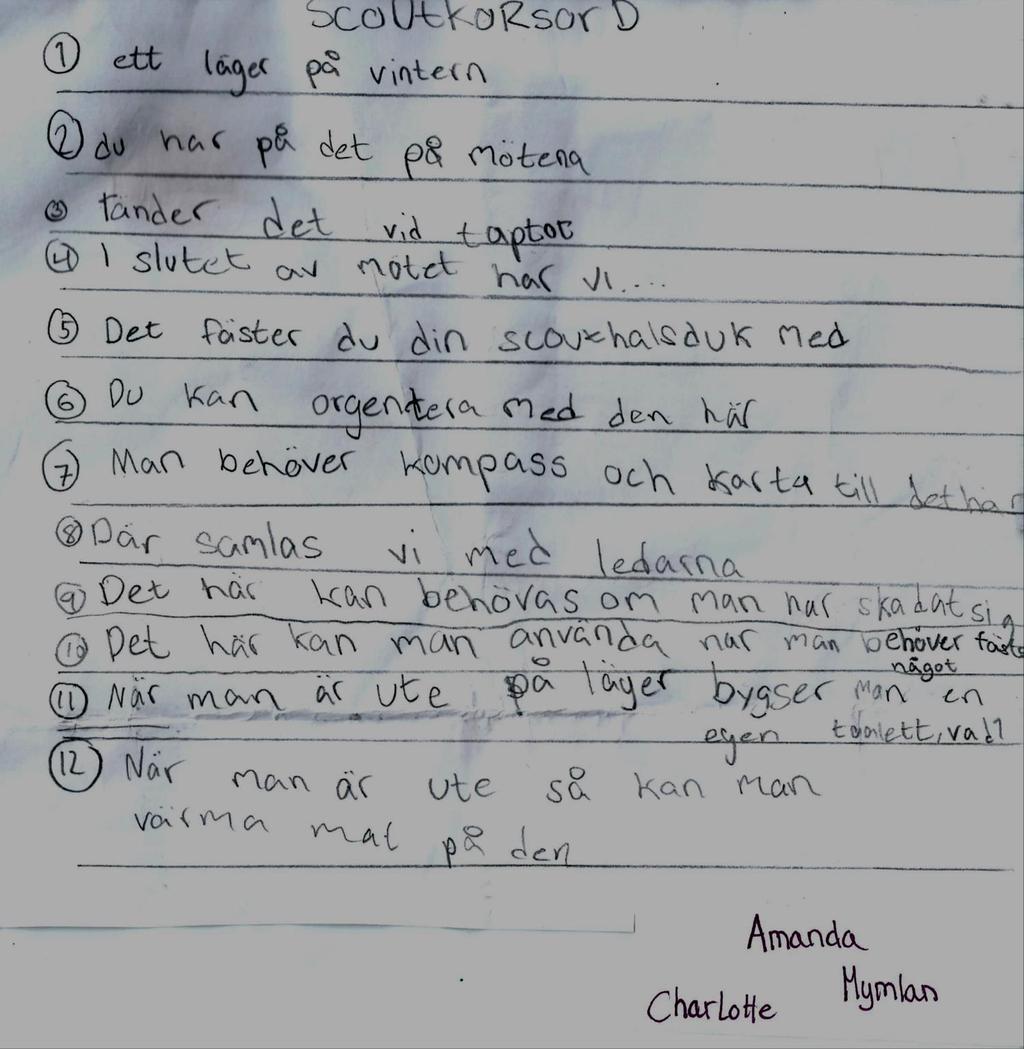 SCOUtKORSorD
① ett läger på vintern
② du har på det på mötena
③ tänder det vid taptot
④ I slutet av mötet har vi....
⑤ Det fäster du din scouthalsduk med
⑥ Du kan orgentera med den här
⑦ Man behöver kompass och karta till det här
⑧ Där samlas vi med ledarna
⑨ Det här kan behövas om man har skadat sig
⑩ Det här kan man använda när man behöver fästa
något
⑪ När man är ute på läger bygger man en
egen toalett, vad?
⑫ När man är ute så kan man
värma mat på den
Amanda
Mymlan
Charlotte